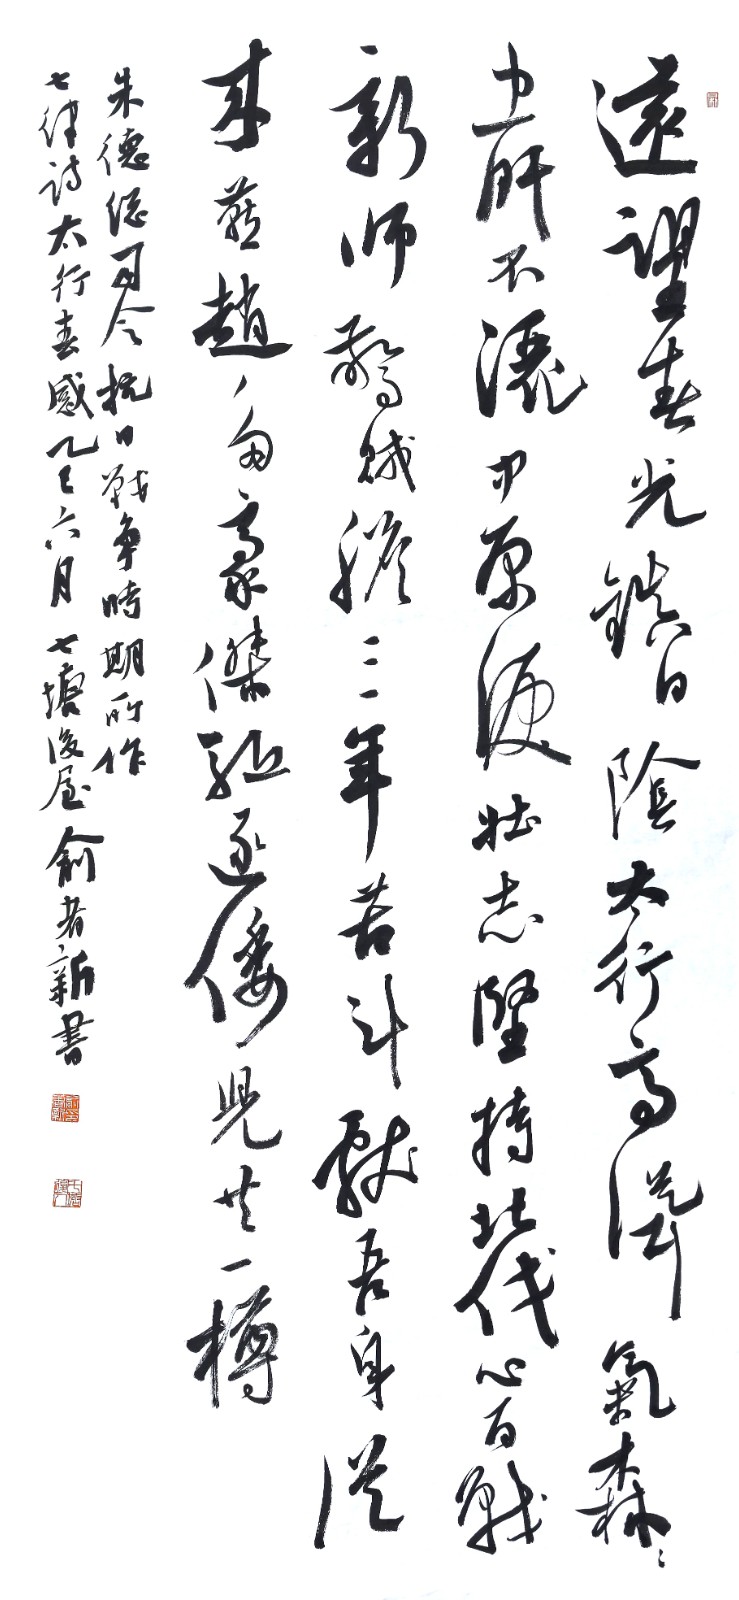 遠望春光鎮日陰太行高聳氣森〻
忠肝不灑中原淚壯志堅持北伐心百戰
新师驚賊膽三年苦斗獻吾身從
來燕趙多豪傑驅逐倭兒共一樽
朱德總司令抗日戰爭時期所作
七律詩太行春感乙巳六月七塘後屋俞者新書